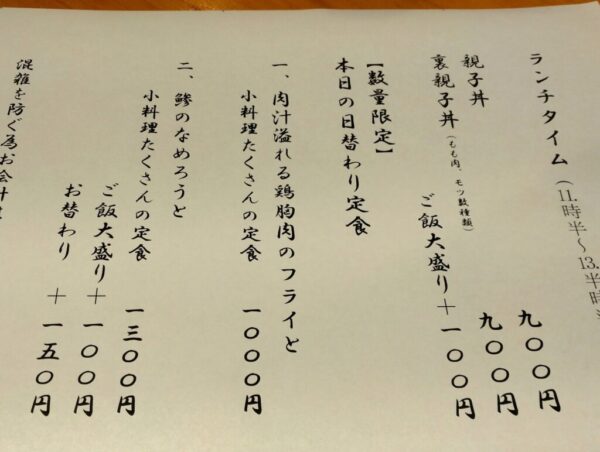 ランチタイム（11.時半〜13.半時
親子丼　九〇〇円
裏親子丼（もも肉、モツ数種類）　九〇〇円
ご飯大盛り＋一〇〇円
【数量限定】
本日の日替わり定食
一、肉汁溢れる鶏胸肉のフライと
小料理たくさんの定食　一〇〇〇円
二、鯵のなめろうと
小料理たくさんの定食　一三〇〇円
ご飯大盛り＋一〇〇円
お替わり　＋一五〇円
混雑を防ぐ為お会計は